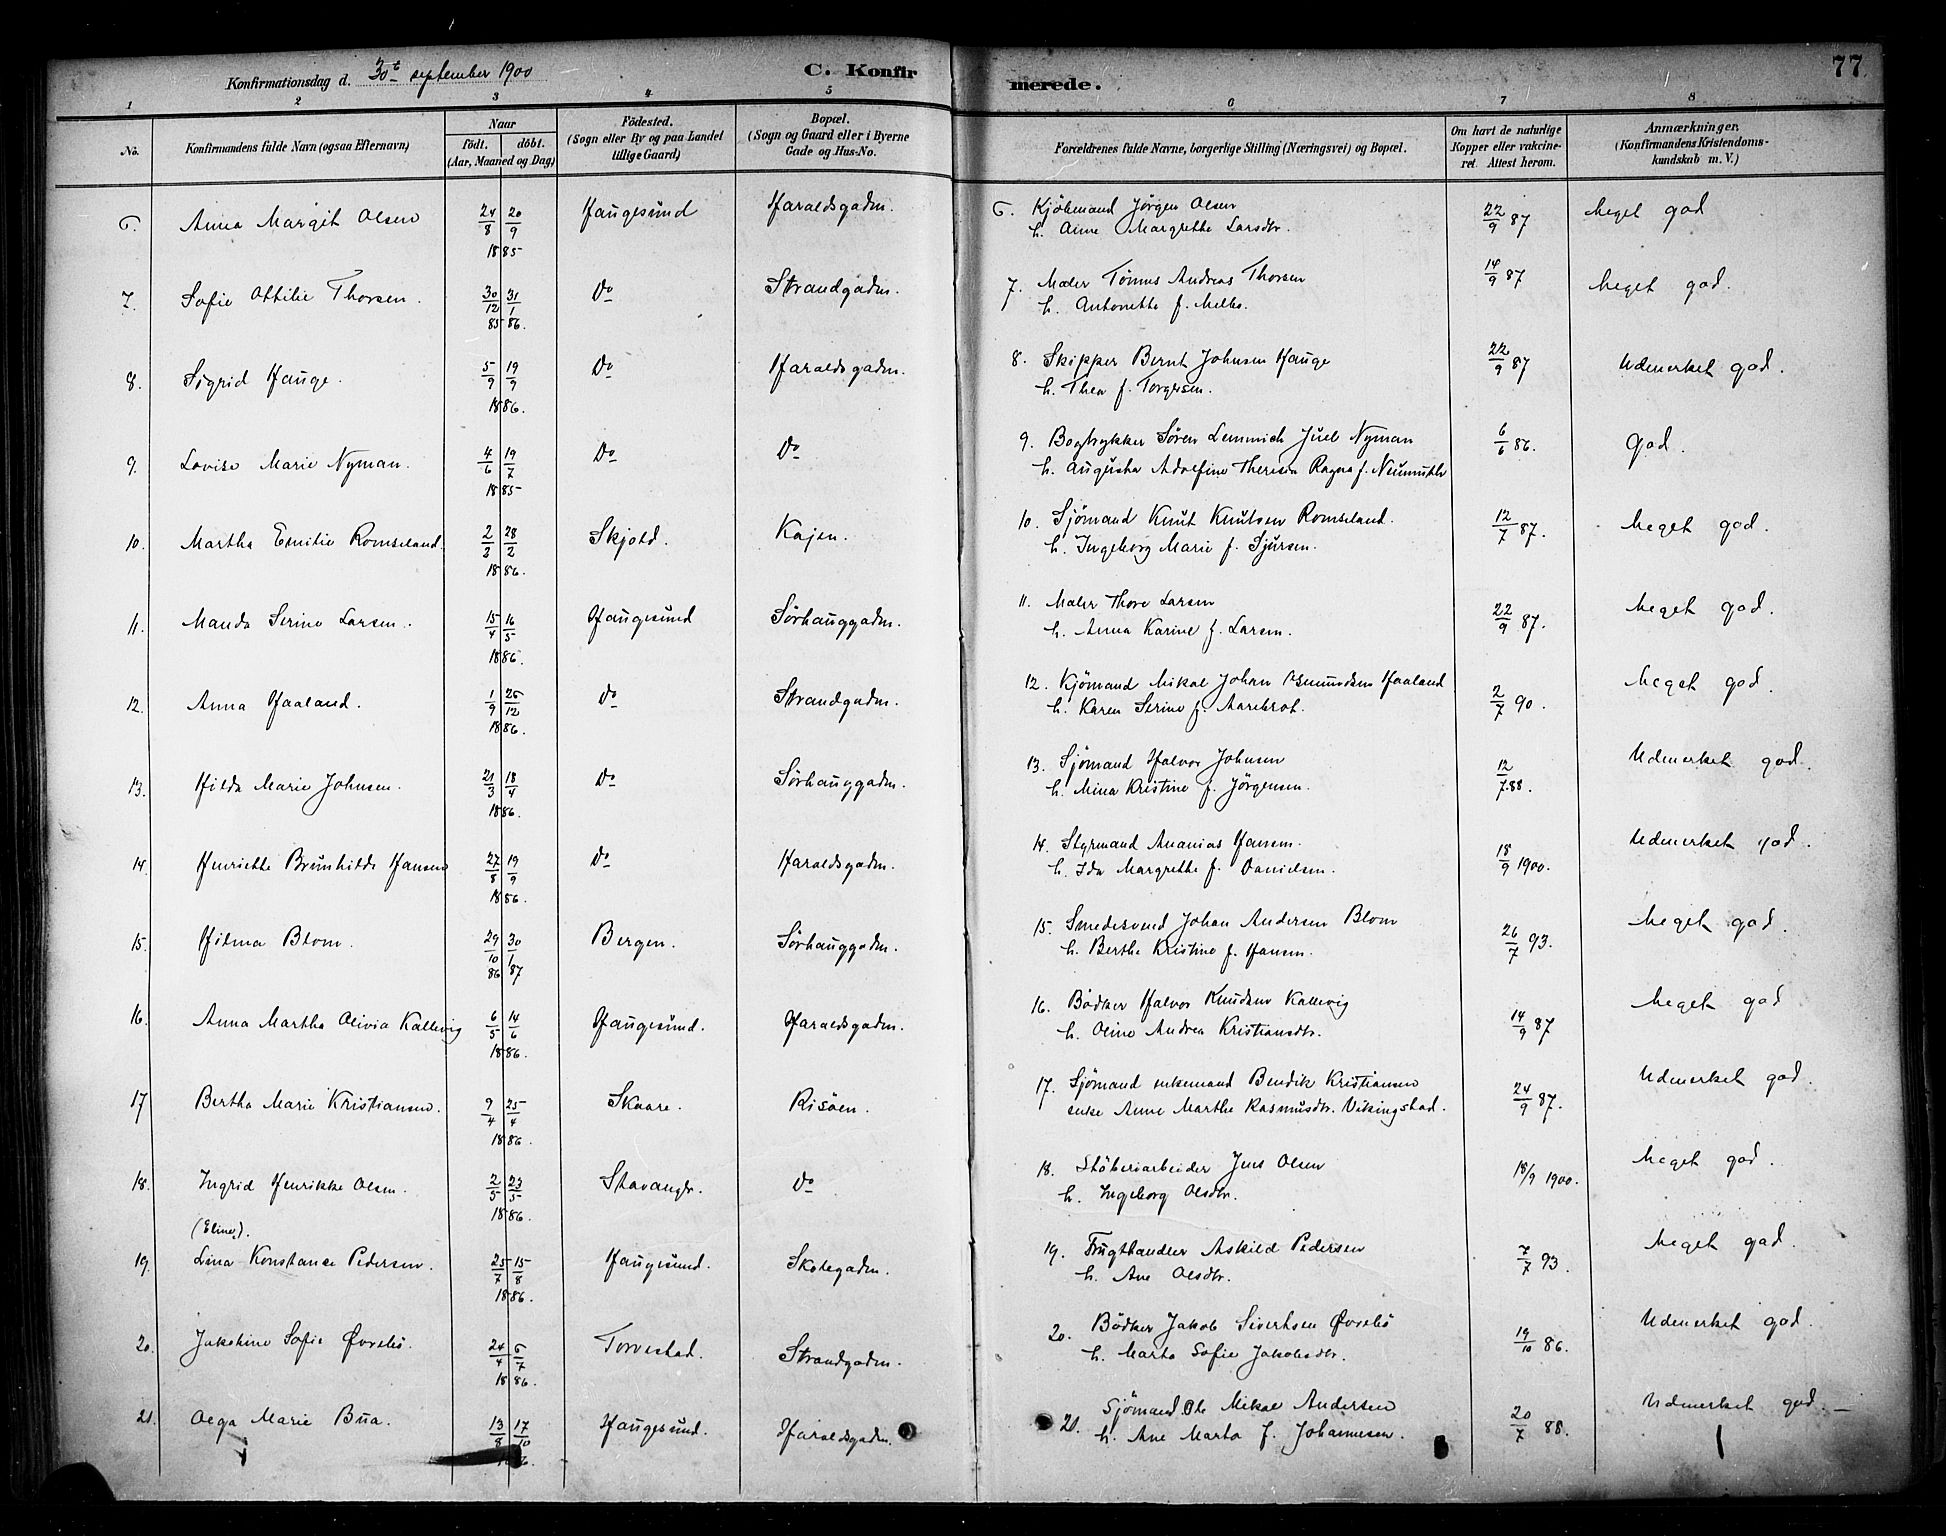 77
Konfirmationsdag d. 30te september 1900
C. Konfirmerede.
1 2 3 4 5 6 7 8
No.
Konfirmandens fulde Navn (ogsaa Efternavn)
Naar
födt. döbt.
(Aar, Maaned og Dag)
Födested.
(Sogn eller By og paa Landet
tillige Gaard)
Bopæl.
(Sogn og Gaard eller i Byerne
Gade og Hus-No.
Forældrenes fulde Navne, borgerlige Stilling (Næringsvei) og Bopæl.
Om havt de naturlige
Kopper eller vakcine-
ret. Attest herom.
Anmærkninger.
(Konfirmandens Kristendoms-
kundskab m. V.)
6. Anna Margit Olsen 24/8 20/9 1885 Haugesund Haraldsgaden. 6. Kjöbmand Jörgen Olsen 22/9 87 Meget god
h. Anne Margrethe Larsdtr.
7. Sofie Ottilie Thorsen. 30/12 85 31/1 86. Do Strandgaden. 7. Maler Tönnes Andreas Thorsen 14/9 87 Meget god.
h. Antonette f. Melbo.
8. Sigrid Hauge. 5/9 19/9 1886. Do Haraldsgaden. 8. Skipper Bernt Johnsen Hauge 22/9 87 Udmerket god.
h. Thea f. Torgersen.
9. Lovise Marie Nyman. 4/6 19/7 1885 Do Do 9. Bogtrykker Sören Lemmich Juel Nyman 6/6 86. God.
h. Augusta Adolfine Theresia Ragna f. Neumuthr
10. Martha Emilie Romseland. 2/2 28/2 1886. Skjold. Kajen. 10. Sjömand Knut Knutsen Romseland. 12/7 87. Meget god.
h. Ingeborg Marie f. Sjursen.
11. Manda Serine Larsen. 15/4 16/5 1886. Haugesund Sörhauggaden. 11. Maler Thore Larsen 22/9 87. Meget god.
h. Anna Karine f. Larsen.
12. Anna Haaland. 1/9 25/12 1886. Do Strandgaden. 12. Kjömand Mikal Johan Haaland 2/7 90. Meget god.
h. Karen Serine f. Aarebrot.
13. Hilda Marie Johnsen. 21/3 18/4 1886. Do Sörhauggaden. 13. Sjömand Halvor Johnsen 12/7.88. Udmerket god.
h. Mina Kristine f. Jörgensen.
14. Henriette Brunhilde Hansen 27/8 19/9 1886. Do Haraldsgaden. 14. Styrmand Ananias Hansen. 18/9 1900. Udmerket god.
h. Ida Margrethe f. Danielsen.
15. Hilma Blom. 29/10 86 30/1 87 Bergen. Sörhauggaden. 15. Smedesvend Johan Andersen Blom 26/7 93. Meget god.
h. Berthe Kristine f. Hansen.
16. Anna Martha Olivia Kallevig 6/5 14/6 1886. Haugesund. Haraldsgaden. 16. Bödker Halvor Knudsen Kallevig 14/9 87 Meget god
h. Oline Andrea Kristiansdtr.
17 Bertha Marie Kristiansen. 9/4 25/4 1886. Skaare. Risöen. 17. Sjömand enkemand Bendik Kristiansen 24/9 87. Udmerket god.
enke Anne Marthe Rasmusdtr. Vikingstad.
18. Ingrid Henrikke Olsen. 2/5 23/5 1886. Stavanger. Do 18. Stöberiarbeider Jens Olsen 18/9 1900. Meget god.
h. Ingeborg Olsdtr.
(Eline).
19. Lina Konstance Pedersen. 25/7 15/8 1886. Haugesund. Skolegaden. 19. Frugthandler Askild Pedersen 7/7 93. Meget god.
h. Ane Olsdtr.
20. Jakobine Sofie Øvrebö. 24/4 6/7 1886. Torvestad. Strandgaden. 20. Bödker Jakob Sivertsen Øvrebö 19/10 86. Udmerket god.
h. Marta Sofie Jakobsdtr.
21. Olga Marie Bua. 13/8 17/10 Haugesund. Haraldsgaden. 21. Sjömand Ole Mikal Andersen 20/7 88. Udmerket god.
h. Ane Marta f. Johannesen.